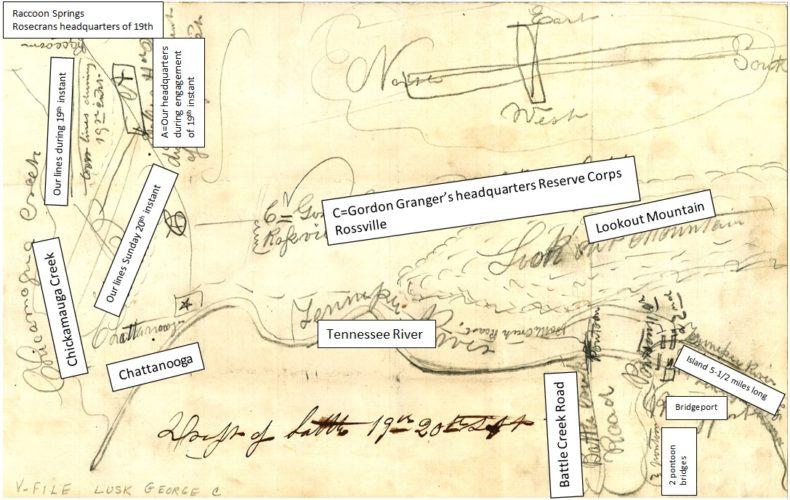 Raccoon Springs
Rosecrans headquarters of 19th
A=Our headquarters
during engagement
of 19th instant
Our lines during 19th instant
our lines during
19th inst.
East
North
South
West
C=Gordon Granger's headquarters Reserve Corps
Rossville
C = Go
Rossvi
Lookout Mountain
Lookout Mountain
Our lines Sunday 20th instant
B
Chickamauga Creek
Chicamauga Creek
Chattanooga
Tennessee River
Tennessee
River
Battle Creek Road
Battle
Road
Pontoon
Island 5-1/2 miles long
Tennessee River
Bridgeport
2 pontoon
bridges
Draft of battle 19th 20th Sept
V-FILE LUSK GEORGE C